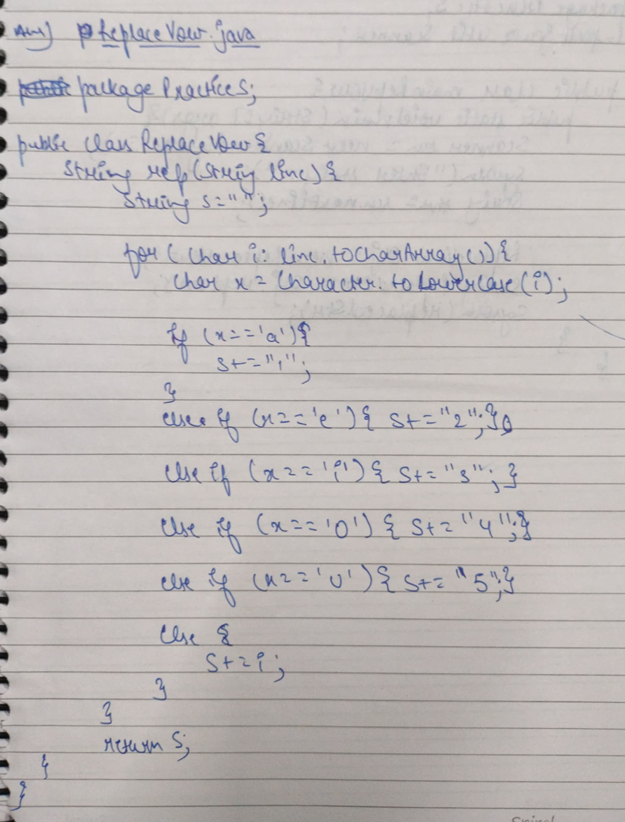 Ans) ReplaceVow.java
package PracticeS;
public class ReplaceVow {
String rep(String line) {
String s = "";
for (char i: line.toCharArray()) {
char x = Character.toLowerCase(i);
if (x == 'a') {
s += "1";
}
else if (x == 'e') { s += "2"; }
else if (x == 'i') { s += "3"; }
else if (x == 'o') { s += "4"; }
else if (x == 'u') { s += "5"; }
else {
s += i;
}
}
return s;
}
}